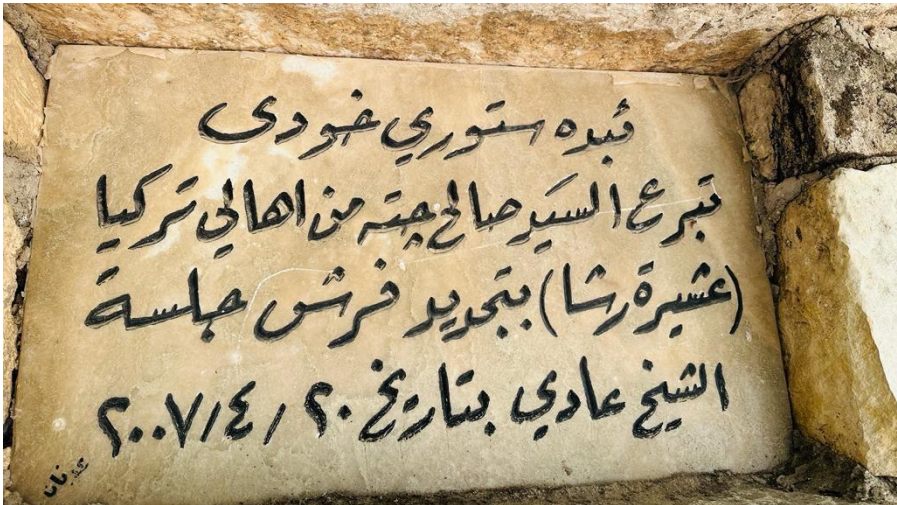 ڤبده ستوري خودى
تبرع السَيَد صالح چته من اهالي تركيا
(عشيرة رشا) بتجديد فرش جلسة
الشيخ عادي بتاريخ ٢٠ / ٤ / ٢٠٠٧
عدنان